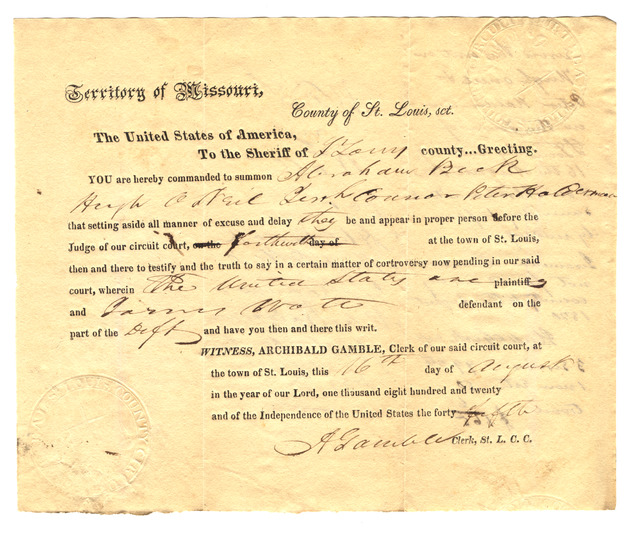 Territory of Missouri,
County of St. Louis, sct.
The United States of America,
To the Sheriff of St Louis county...Greeting.
YOU are hereby commanded to summon Abraham Beck
Hugh O Neil Connor Peter Haldeman
that setting aside all manner of excuse and delay they be and appear in proper person before the
Judge of our circuit court, on the forthwith day of at the town of St. Louis,
then and there to testify and the truth to say in a certain matter of controversy now pending in our said
court, wherein The United States are plaintiff
and James Watt defendant on the
part of the Deft and have you then and there this writ.
WITNESS, ARCHIBALD GAMBLE, Clerk of our said circuit court, at
the town of St. Louis, this 16th day of August
in the year of our Lord, one thousand eight hundred and twenty
and of the Independence of the United States the forty fifth
A Gamble Clerk, St. L. C. C.